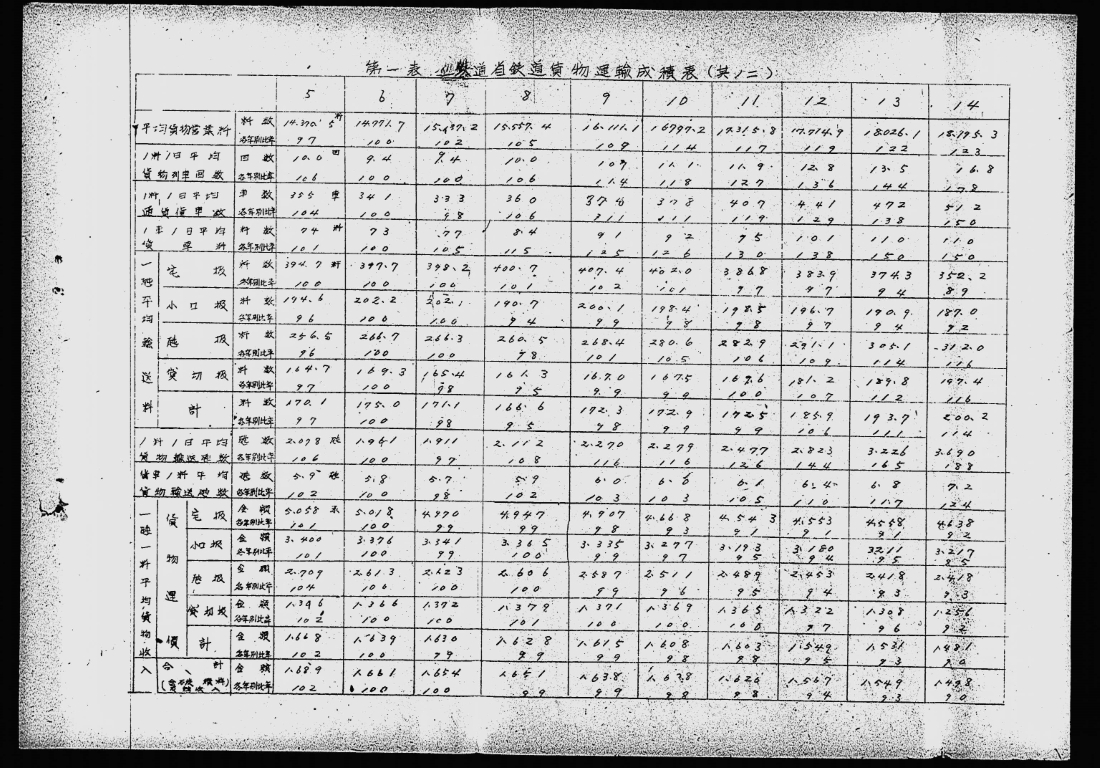 第一表 鉄道省鉄道貨物運輸成績表(其ノ二)
5 6 7 8 9 10 11 12 13 14
平均貨物営業粁 粁数 14.390.5粁 14.771.7 15.137.2 15.557.4 16.111.1 16797.2 17.315.8 17.714.9 18.026.1 18.195.3
各年別比率 97 100 102 105 109 114 117 119 122 123
1粁1日平均 回数 10.0回 9.4 9.4 10.0 10.7 11.1 11.9 12.8 13.5 16.8
貨物列車回数 各年別比率 106 100 100 106 114 118 127 136 144 178
1粁1日平均 車数 355車 341 333 360 378 378 407 441 472 512
通貨貨車数 各年別比率 104 100 98 106 111 111 119 129 138 150
1車1日平均 粁数 74粁 73 77 84 91 92 95 101 110 110
貨車粁 各年別比率 101 100 105 115 125 126 130 138 150 150
一瓲平均輸送粁
宅扱 粁数 394.7粁 397.7 398.2 400.7 407.4 402.0 386.8 383.9 374.3 352.2
各年別比率 100 100 100 101 102 101 97 97 94 89
小口扱 粁数 194.6 202.2 202.1 190.7 200.1 198.4 198.5 196.7 190.9 187.0
各年別比率 96 100 100 94 99 98 98 97 94 92
瓲扱 粁数 256.5 266.7 266.3 260.5 268.4 280.6 282.9 291.1 305.1 312.0
各年別比率 96 100 100 98 101 105 106 109 114 116
貸切扱 粁数 164.7 169.3 165.4 161.3 167.0 167.5 169.6 181.2 189.8 197.4
各年別比率 97 100 98 95 99 99 100 107 112 116
計 粁数 170.1 175.0 171.1 166.6 172.3 172.9 172.5 185.9 193.7 200.2
各年別比率 97 100 98 95 98 99 99 106 111 114
1粁1日平均 瓲数 2.078瓲 1.961 1.911 2.112 2.270 2.279 2.477 2.823 3.226 3.690
貨物輸送瓲数 各年別比率 106 100 97 108 116 116 126 144 165 188
貨車1粁平均 瓲数 5.9瓲 5.8 5.7 5.9 6.0 6.6 6.1 6.4 6.8 7.2
貨物輸送瓲数 各年別比率 102 100 98 102 103 103 105 110 117 124
一瓲一粁平均貨物収入
貨物運価
宅扱 金額 5.058 5.018 4.970 4.947 4.907 4.668 4.543 4.553 4.558 4.638
各年別比率 101 100 99 99 98 93 91 91 91 92
小口扱 金額 3.400 3.376 3.341 3.365 3.335 3.277 3.193 3.180 3211 3.217
各年別比率 101 100 99 100 99 97 95 94 95 95
瓲扱 金額 2.709 2.613 2.623 2.606 2.587 2.511 2.489 2.453 2.418 2.418
各年別比率 104 100 100 100 99 96 95 94 93 93
貸切扱 金額 1.396 1.366 1.372 1.379 1.371 1.369 1.365 1.322 1.308 1.256
各年別比率 102 100 100 101 100 100 100 97 96 92
計 金額 1.668 1.639 1.630 1.628 1.615 1.608 1.603 1.549 1.531 1.481
各年別比率 102 100 99 99 99 98 98 95 93 90
合計 金額 1.689 1.661 1.654 1.651 1.638 1.638 1.626 1.567 1.549 1.498
各年別比率 102 100 100 99 99 98 98 94 93 90